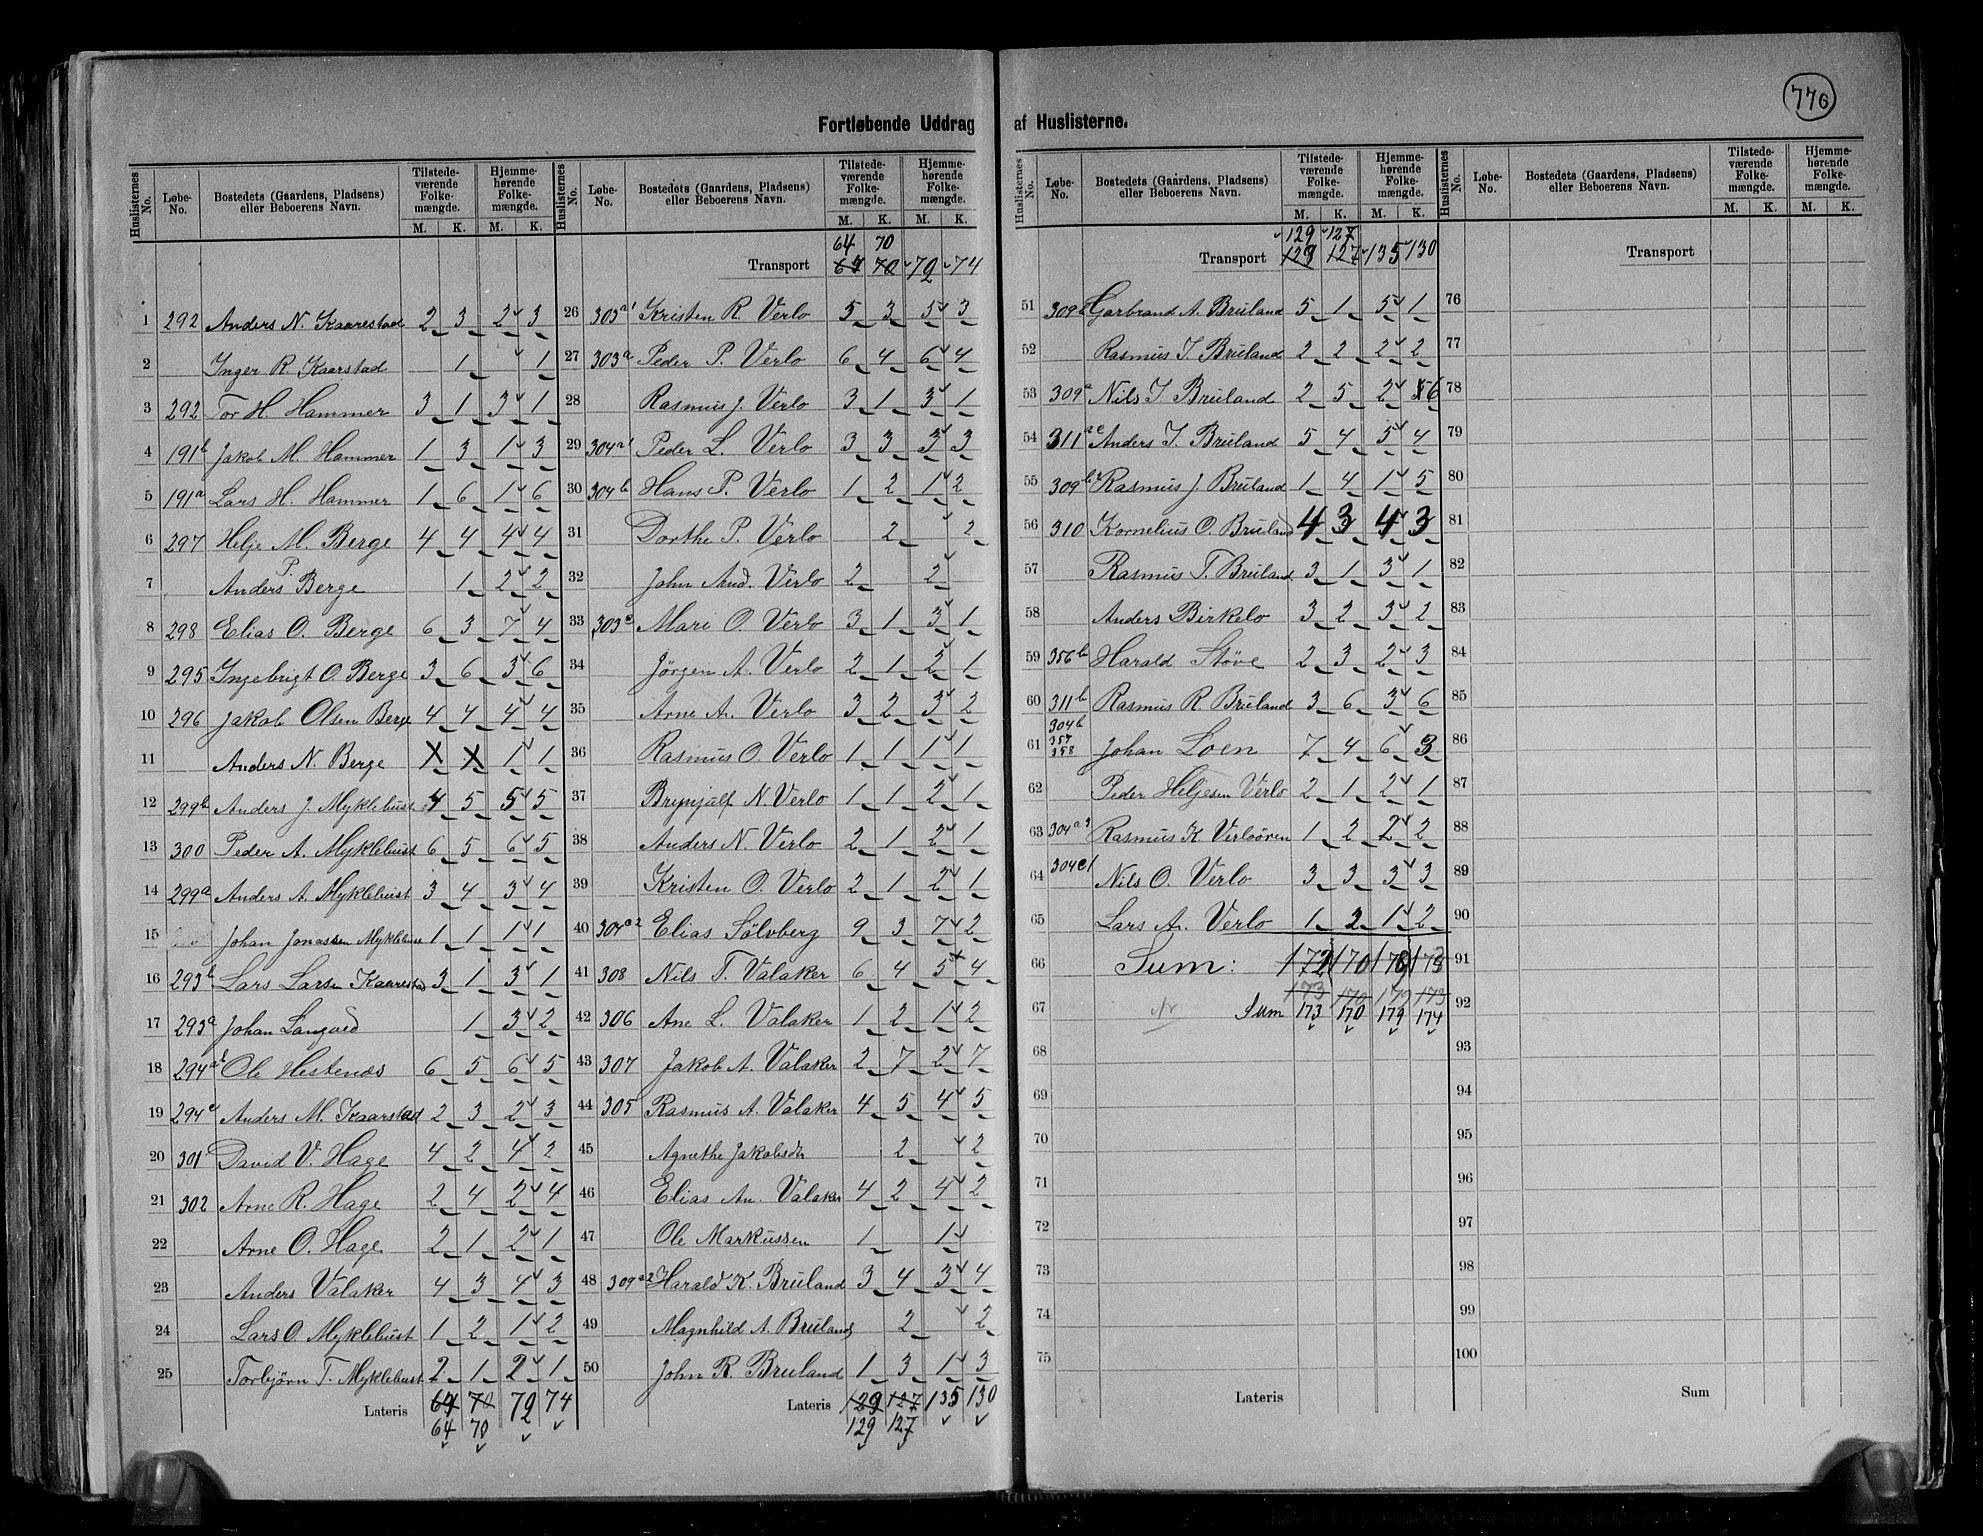 776
Fortløbende Uddrag af Huslisterne.
Huslisternes No. Løbe-No. Bostedets (Gaardens, Pladsens) eller Beboerens Navn. Tilstedeværende Folkemængde. M. K. Hjemmehørende Folkemængde. M. K.
1 292 Anders N. Kaarestad 2 3 2 3
2 Inger R. Kaarstad 1 1
3 292 Tor H. Hammer 3 1 3 1
4 191b Jakob M. Hammer 1 3 1 3
5 191a Lars H. Hammer 1 6 1 6
6 297 Helje M. Berge 4 4 4 4
7 Anders P. Berge 1 2 2
8 298 Elias O. Berge 6 3 7 4
9 295 Ingebrigt O. Berge 3 6 3 6
10 296 Jakob Olsen Berge 4 4 4 4
11 Anders N. Berge X X 1 1
12 299b Anders J. Myklebust 4 5 5 5
13 300 Peder A. Myklebust 6 5 6 5
14 299a Anders A. Myklebust 3 4 3 4
15 Johan Jonassen Myklebust 1 1 1 1
16 293b Lars Larsen Kaarestad 3 1 3 1
17 293a Johan Langved 1 3 2
18 294a Ole Hestenes 6 5 6 5
19 294c Anders M. Kaarstad 2 3 2 3
20 301 David V. Hage 4 2 4 2
21 302 Arne R. Hage 2 4 2 4
22 Arne O. Hage 2 1 2 1
23 Anders Valaker 4 3 4 3
24 Lars O. Myklebust 1 2 1 2
25 Torbjörn T. Myklebust 2 1 2 1
Lateris 64 70 72 74
64 70
Huslisternes No. Løbe-No. Bostedets (Gaardens, Pladsens) eller Beboerens Navn. Tilstedeværende Folkemængde. M. K. Hjemmehørende Folkemængde. M. K.
64 70
Transport 64 70 72 74
26 303a1 Kristen R. Verlo 5 3 5 3
27 303a Peder P. Verlo 6 4 6 4
28 Rasmus J. Verlo 3 1 3 1
29 304a1 Peder L. Verlo 3 3 3 3
30 304b Hans P. Verlo 1 2 1 2
31 Dorthe P. Verlo 2 2
32 John And. Verlo 2 2
33 303c Mari O. Verlo 3 1 3 1
34 Jörgen A. Verlo 2 1 2 1
35 Arne A. Verlo 3 2 3 2
36 Rasmus O. Verlo 1 1 1 1
37 Brynjulf N. Verlo 1 1 2 1
38 Anders N. Verlo 2 1 2 1
39 Kristen O. Verlo 2 1 2 1
40 304c2 Elias Sölvberg 9 3 7 2
41 308 Nils T. Valaker 6 4 5 4
42 306 Ane L. Valaker 1 2 1 2
43 307 Jakob A. Valaker 2 7 2 7
44 305 Rasmus A. Valaker 4 5 4 5
45 Agnethe Jakobsdtr 2 2
46 Elias An. Valaker 4 2 4 2
47 Ole Markussen 1 1
48 309a2 Harald K. Bruland 3 4 3 4
49 Magnhild A. Bruland 2 2
50 John R. Bruland 1 3 1 3
Lateris 129 127 135 130
129 127
Huslisternes No. Løbe-No. Bostedets (Gaardens, Pladsens) eller Beboerens Navn. Tilstedeværende Folkemængde. M. K. Hjemmehørende Folkemængde. M. K.
129 127
Transport 129 127 135 130
51 309b Garbrand A. Bruland 5 1 5 1
52 Rasmus I. Bruland 2 2 2 2
53 309a Nils I. Bruland 2 5 2 6
54 311ac Anders I. Bruland 5 4 5 4
55 309b Rasmus J. Bruland 1 4 1 5
56 310 Kornelius O. Bruland 4 3 4 3
57 Rasmus T. Bruland 3 1 3 1
58 Anders Birkelo 3 2 3 2
59 356b Harald Støve 2 3 2 3
60 311b Rasmus R Bruland 3 6 3 6
61 304b 357 358 Johan Loen 7 4 6 3
62 Peder Heljesen Verlo 2 1 2 1
63 304a3 Rasmus K Verloören 1 2 2 2
64 304c1 Nils O. Verlo 3 3 3 3
65 Lars A. Verlo 1 2 1 2
66 Sum: 172 170 178 173
173 170 179 173
67 Sum 173 170 179 174
68
69
70
71
72
73
74
75
Lateris
Huslisternes No. Løbe-No. Bostedets (Gaardens, Pladsens) eller Beboerens Navn. Tilstedeværende Folkemængde. M. K. Hjemmehørende Folkemængde. M. K.
Transport
76
77
78
79
80
81
82
83
84
85
86
87
88
89
90
91
92
93
94
95
96
97
98
99
100
Sum